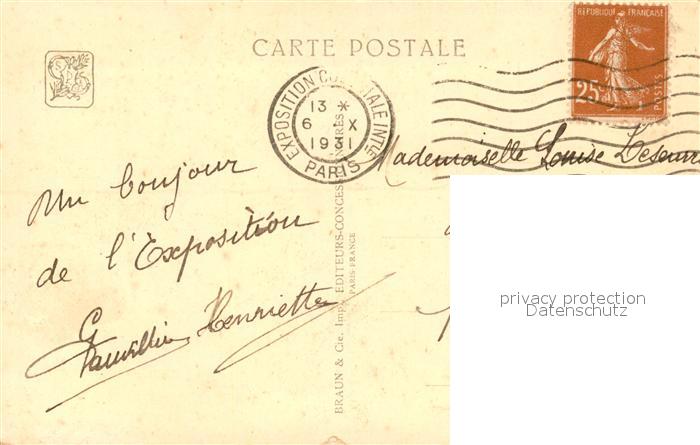 CARTE POSTALE
REPUBLIQUE FRANÇAISE
25c
POSTES
EXPOSITION COLONIALE INTLE
13 *
6 X
1931
PARIS
Mademoiselle Louise
Un bonjour
de l'Exposition
Henriette
BRAUN & Cie, Impr. EDITEURS-CONCESSIONNAIRES
PARIS-FRANCE
privacy protection
Datenschutz